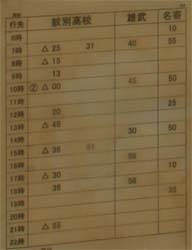 行先 紋別高校 雄武 名寄
6時 10
7時 △ 25 31 40 55
8時 △ 15
9時 13
10時 ② △ 00 45 50
11時
12時 20 25
13時 △ 45 30 50
14時
15時 △ 36
16時 10
17時 △ 30
18時 36 56
19時
20時
21時 △
22時